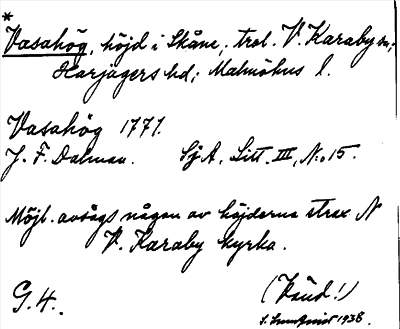 *
Vasahög, höjd i Skåne, trol. V. Karaby sn;
Harjagers hd; Malmöhus l.
Vasahög 1771.
J. F. Dalman. SjA, Litt. III, N:o 15.
Möjl. avsågs någon av höjderna strax N
V. Karaby kyrka.
G. 4. (Vsnd!)
S. Lundqvist 1938.